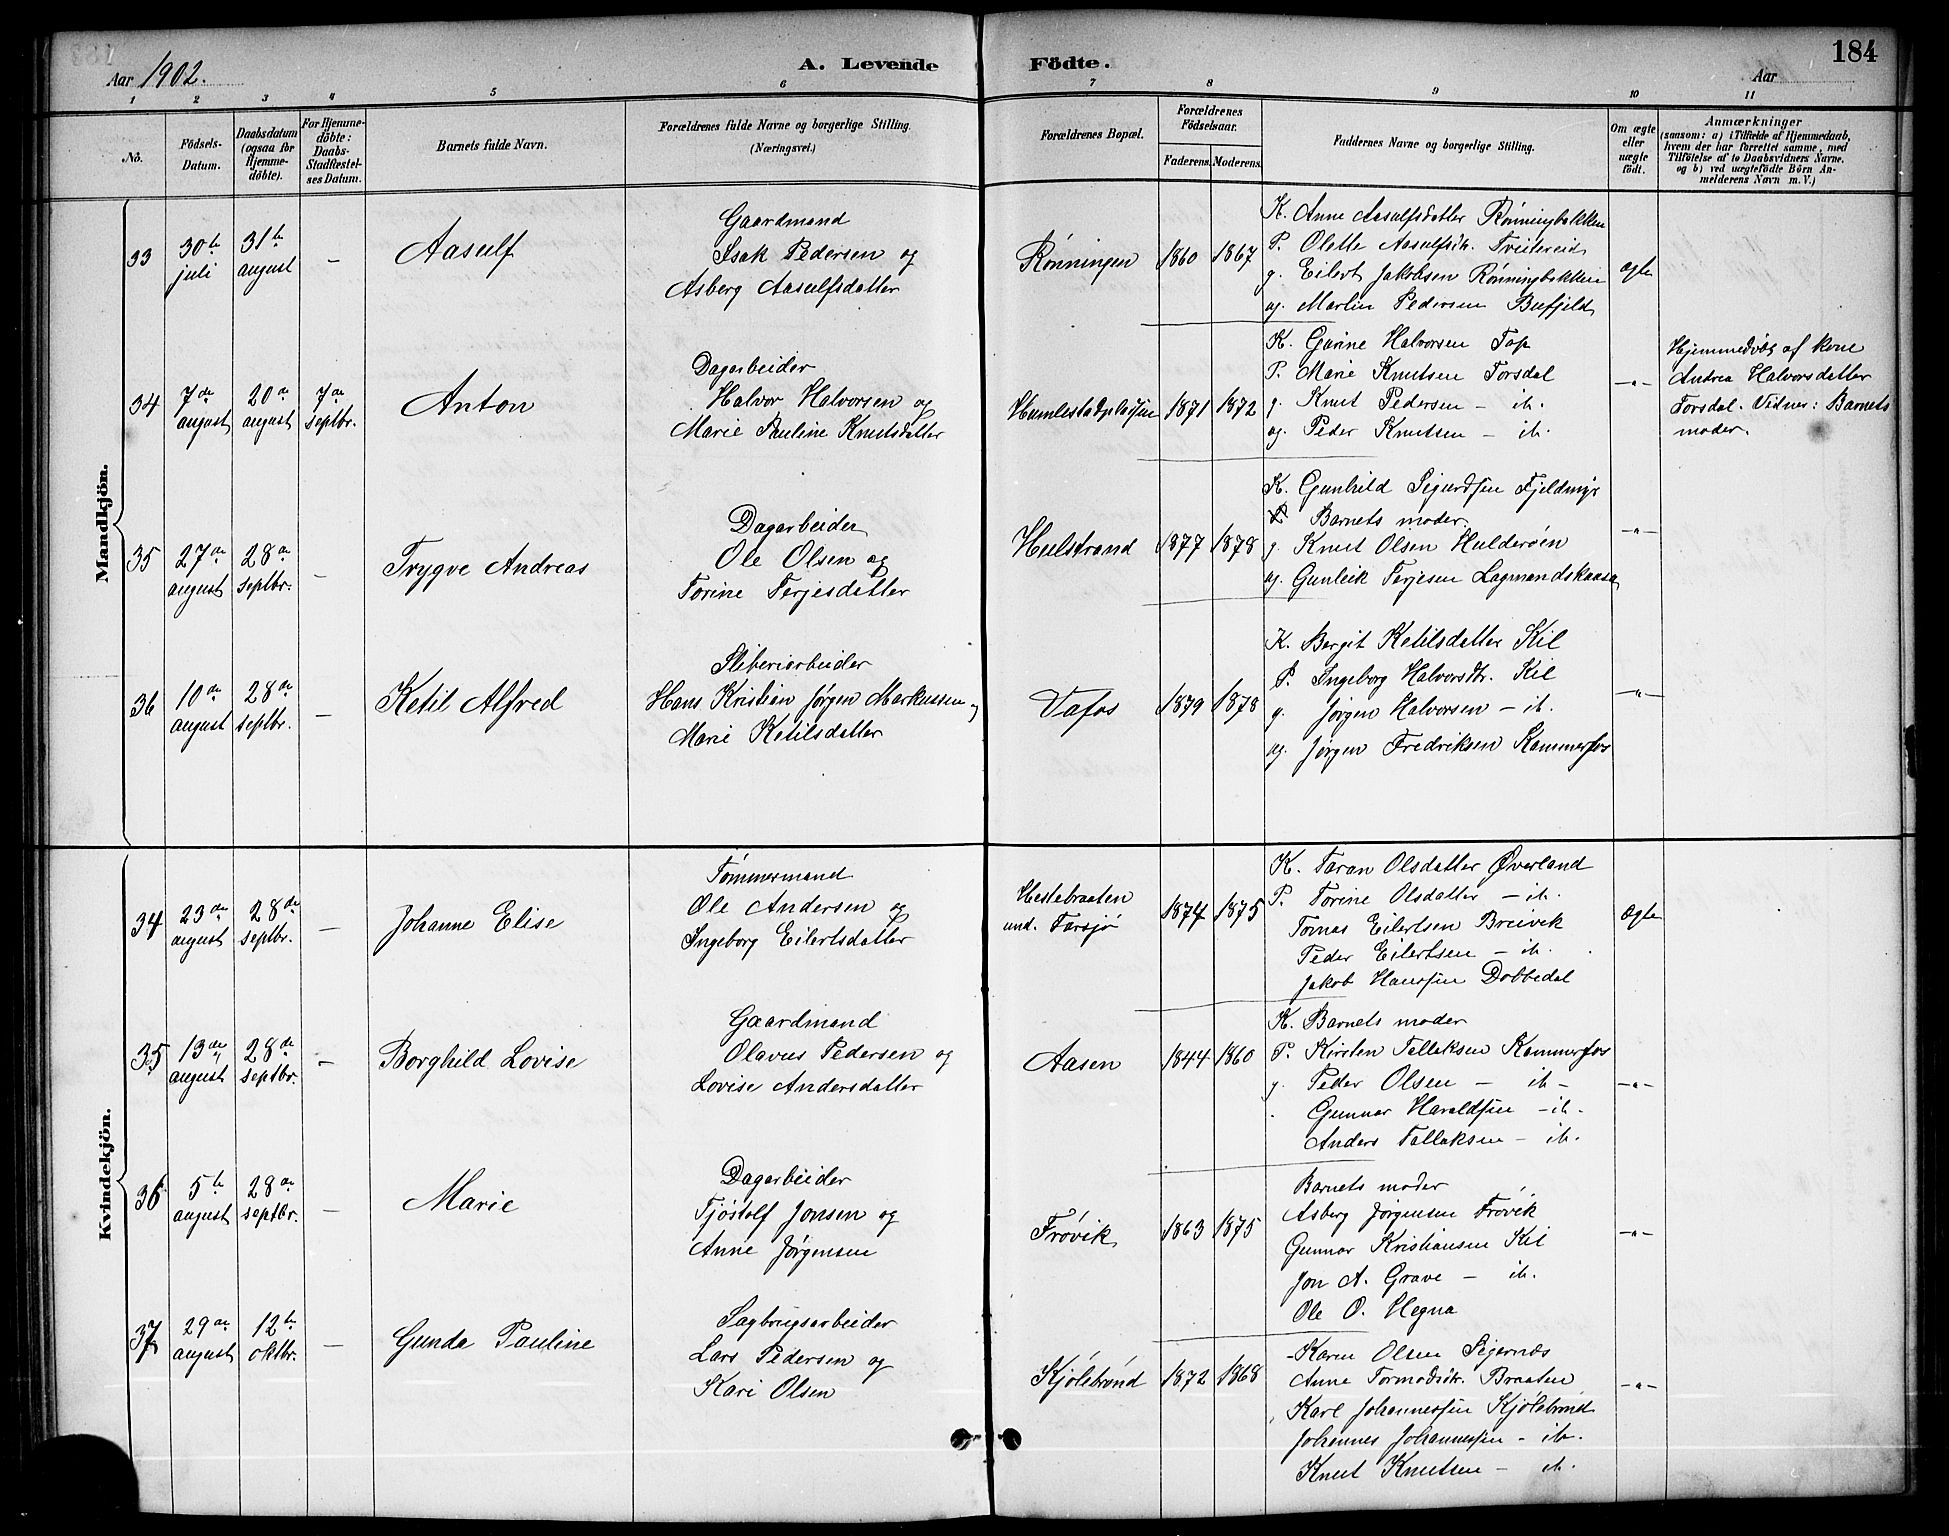 Aar 1902.
A. Levende Födte.
Aar
184
1 2 3 4 5 6 7 8 9 10 11
No.
Födsels-Datum.
Daabsdatum (ogsaa for Hjemme-döbte).
For Hjemme-döbte: Daabs-Stadfæstel-ses Datum.
Barnets fulde Navn.
Forældrenes fulde Navne og borgerlige Stilling.
(Næringsvei.)
Forældrenes Bopæl.
Forældrenes Födselsaar.
Faderens. Moderens.
Faddernes Navne og borgerlige Stilling.
Om ægte eller uægte födt.
Anmærkninger
(saasom: a) i Tilfælde af Hjemmedaab,
hvem der har forrettet samme, med
Tilföielse af to Daabsvidners Navne,
og b) ved uægtefödte Börn An-
melderens Navn m. V.)
Mandkjön.
33
30te juli
31te august
–
Aasulf
Gaardmand
Isak Pedersen og
Asberg Aasulfsdatter
Rønningen
1860 1867
K. Anne Aasulfsdatter Rønningbakken
P. Olette Aasulfsdtr. Tveitereid
g. Eilert Jakobsen Rønningbakken
ag. Martin Pedersen Buefjeld
ægte
34
7de august
20de august
7de septbr.
Anton
Dagarbeider
Halvor Halvorsen og
Marie Pauline Knutsdatter
Humlestadpladsen
1871 1872
K. Gurine Halvorsen
P. Marie Knutsen Torsdal
g. Knut Pedersen – ib.
ag. Peder Knutsen – ib.
–"–
Hjemmedøbt af kone
Andrea Halvorsdatter
Torsdal. Vidner: Barnets
moder.
35
27de august
28de septbr.
–
Trygve Andreas
Dagarbeider
Ole Olsen og
Torine Terjesdatter
Hulstrand
1877 1878
K. Gunhild Sigurdsen Fjeldmyr
Barnets moder
g. Knut Olsen Hulderøen
ag. Gunleik Terjesen Lagmandskaasa
–"–
36
10de august
28de septbr.
–
Ketil Alfred
Sliberiarbeider
Hans Kristian Jørgen Markussen og
Marie Ketilsdatter
Vafos
1879 1878
K. Bergit Ketilsdatter Kil
P. Ingeborg Halvorsdtr. Kil
g. Jørgen Halvorsen – ib.
ag. Jørgen Fredriksen Kammerfos
–"–
Kvindekjön.
34
23de august
28de septbr.
–
Johanne Elise
Tømmermand
Ole Andersen og
Ingeborg Eilertsdatter
Hestebraaten
und. Farsjø
1874 1875
K. Taran Olsdatter Øverland
P. Torine Olsdatter – ib.
Tomas Eilertsen Breivik
Peder Eilertsen – ib.
Jakob Hanssen Dobbedal
Ægte
35
13de august
28de septbr.
–
Borghild Lovise
Gaardmand
Olavus Pedersen og
Lovise Andersdatter
Aasen
1844 1860
K. Barnets moder
P. Kirsten Tallaksen Kammerfos
g. Peder Olsen – ib –
Gunnar Haraldsen – ib.
Anders Tallaksen – ib.
–"–
36
5te august
28de septbr.
–
Marie
Dagarbeider
Tjøstolf Jonsen og
Anne Jørgensen
Frøvik
1863 1875
Barnets moder
Asberg Jørgensen Frøvik
Gunnar Kristiansen Kil
Jon A. Grave – ib.
Ole O. Hegna
–"–
37
29de august
12te oktbr.
–
Gunda Pauline
Sagbrugsarbeider
Lars Pedersen og
Kari Olsen
Kjølebrønd
1872 1868
Karen Olsen Sigernæs
Anne Tormodsdtr. Braaten
Karl Johannessen Kjølebrønd
Johannes Johannessen – ib.
Knut Knutsen – ib.
–"–